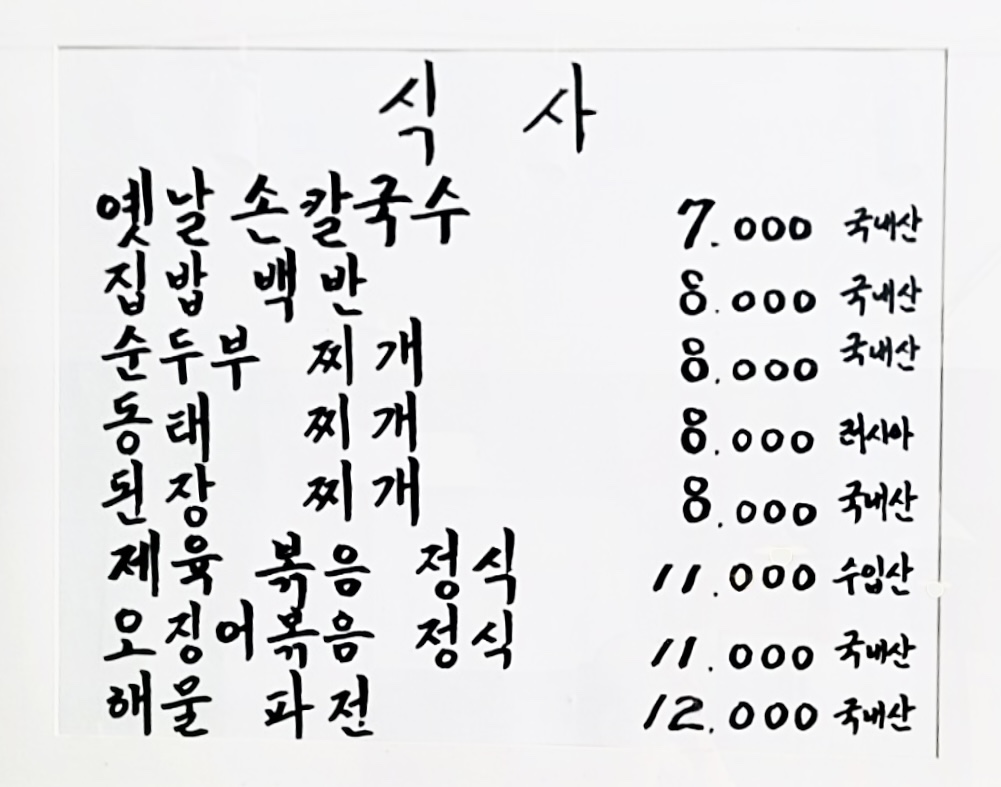 식 사
옛날 손칼국수 7.000 국내산
집밥 백반 8.000 국내산
순두부 찌개 8.000 국내산
동태 찌개 8.000 러시아
된장 찌개 8.000 국내산
제육 볶음 정식 11.000 수입산
오징어볶음 정식 11.000 국내산
해물 파전 12.000 국내산